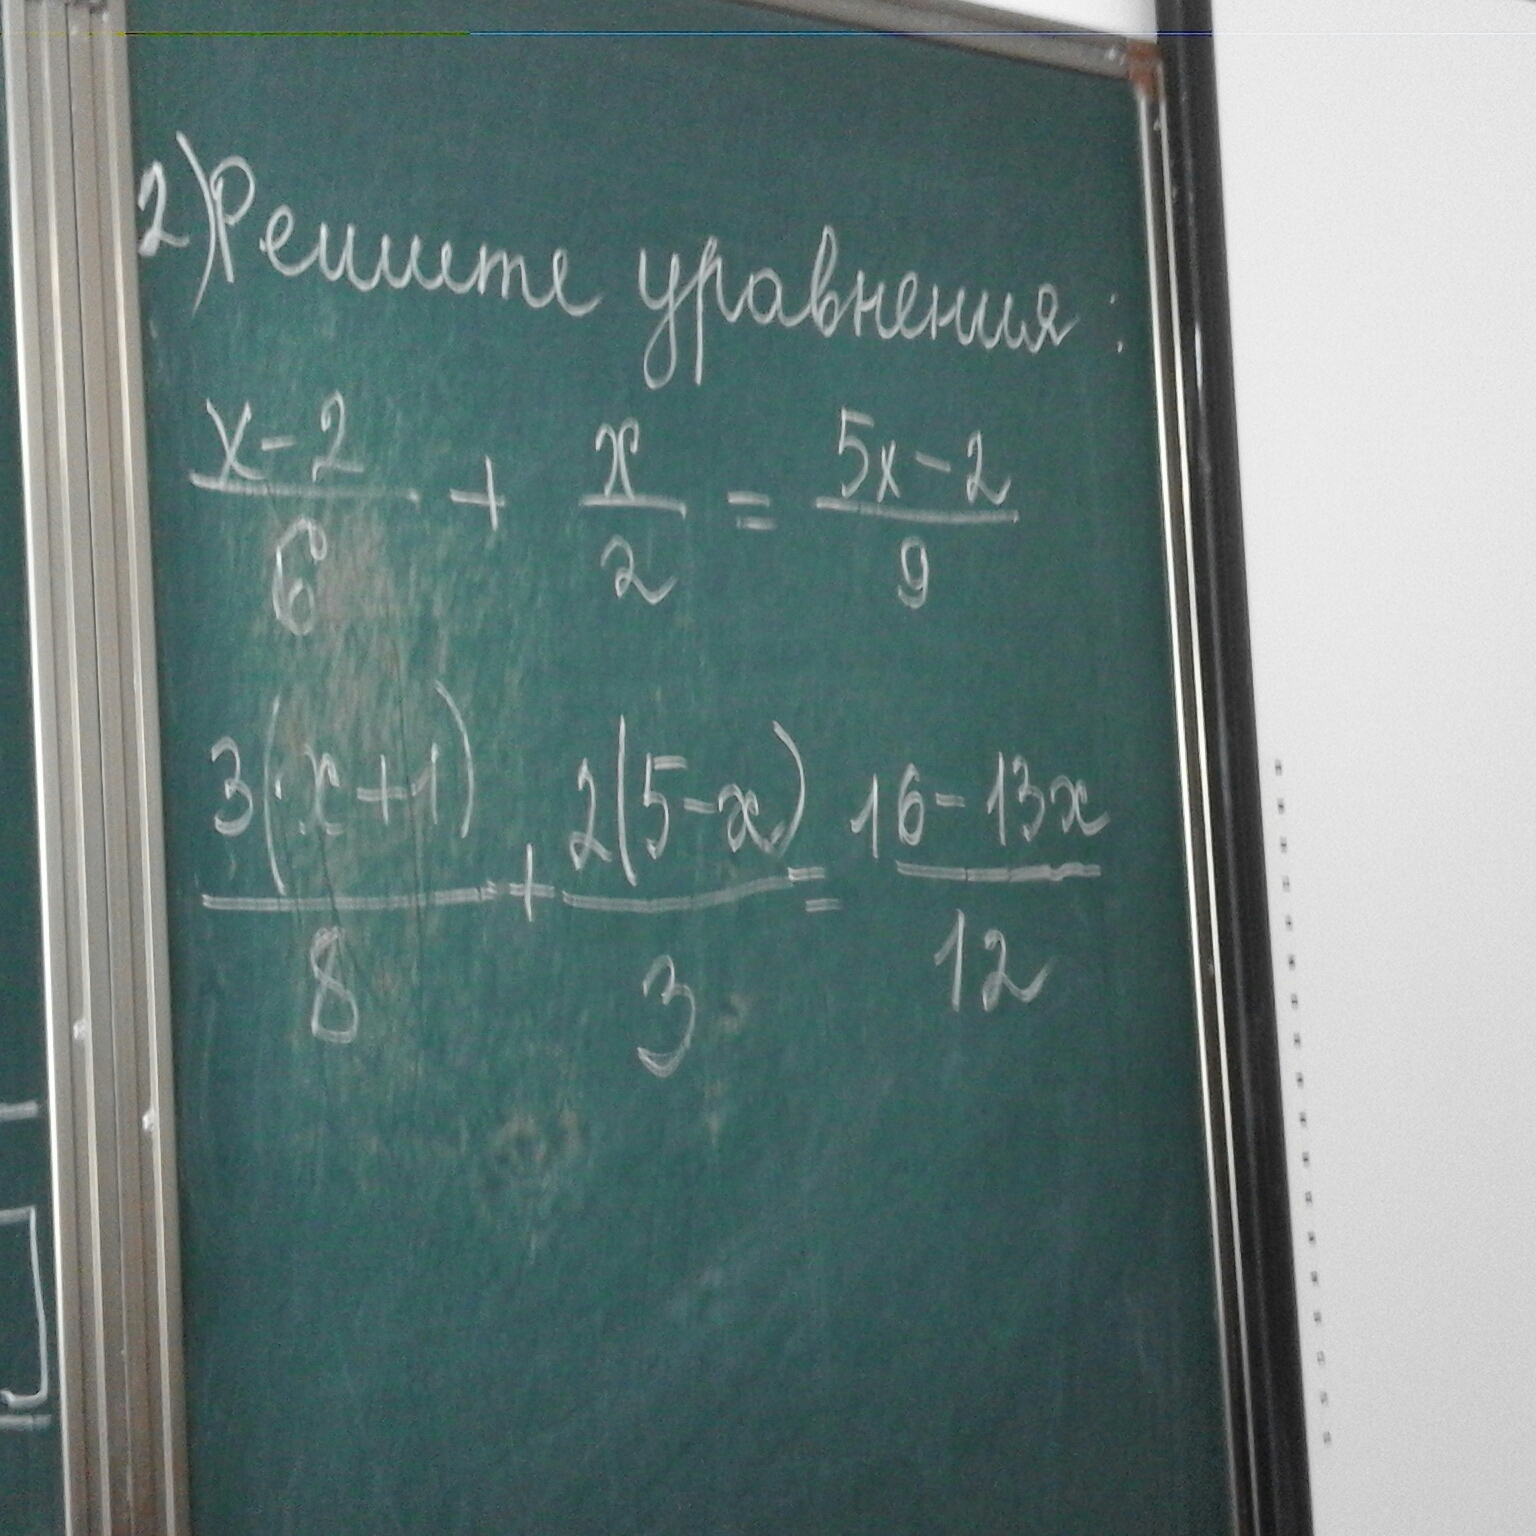 2) Решите уравнения :
x-2/6 + x/2 = 5x-2/9
3(x+1)/8 + 2(5-x)/3 = 16-13x/12